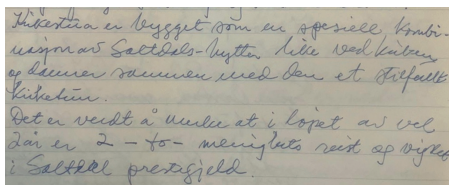 Kirkestua er bygget som en spesiell kombi-
nasjon av Saltdals-hytter like ved kirken
og danner sammen med den et stilfullt
kirketun.
Det er verdt å merke at i løpet av vel
2 år er 2 - to - menighets reist og vigslet
i Saltdal prestegjeld.